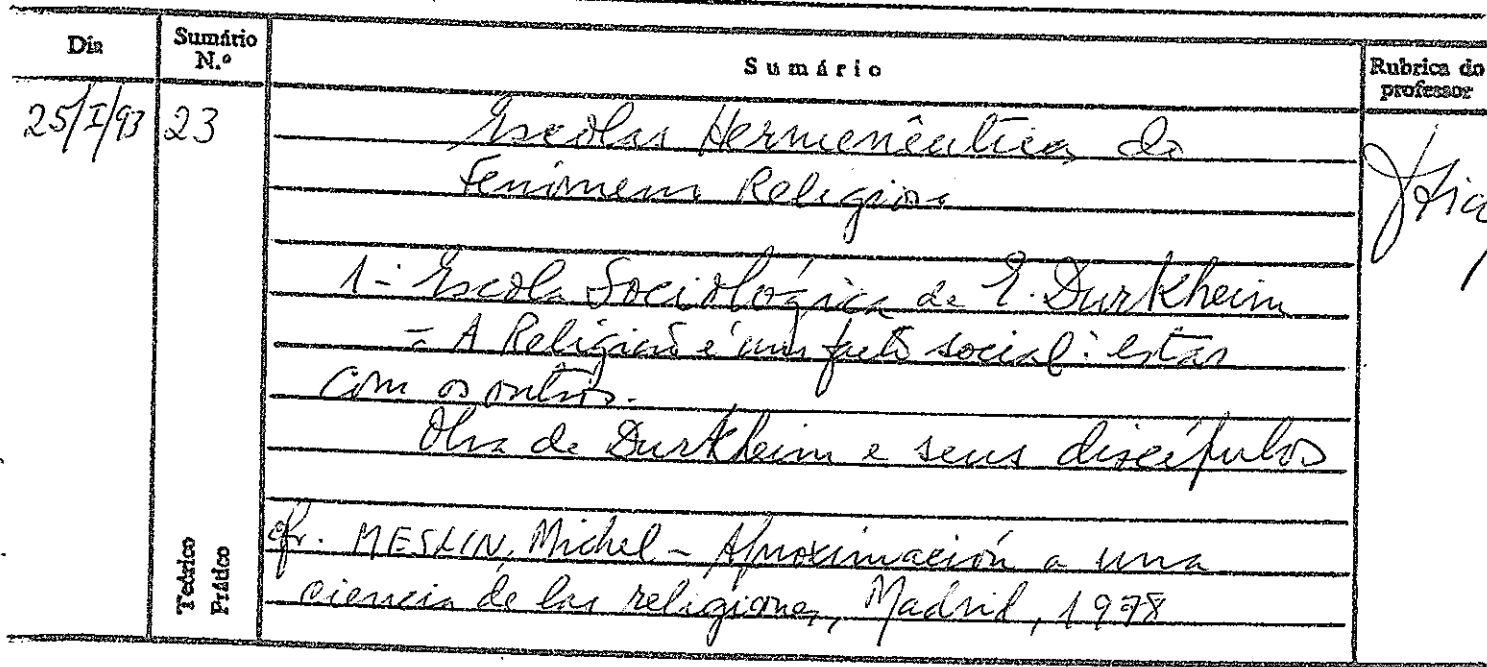 Dia Sumário N.º Sumário Rubrica do professor
25/I/93 23 Escolas Hermenêuticas do
Fenómeno Religioso
1- Escola Sociológica de E. Durkheim
- A Religião é um facto social: estar
com os outros.
Obra de Durkheim e seus discípulos
cfr. MESLIN, Michel - Aproximación a una
ciencia de las religiones, Madrid, 1978
Teórico
Prático